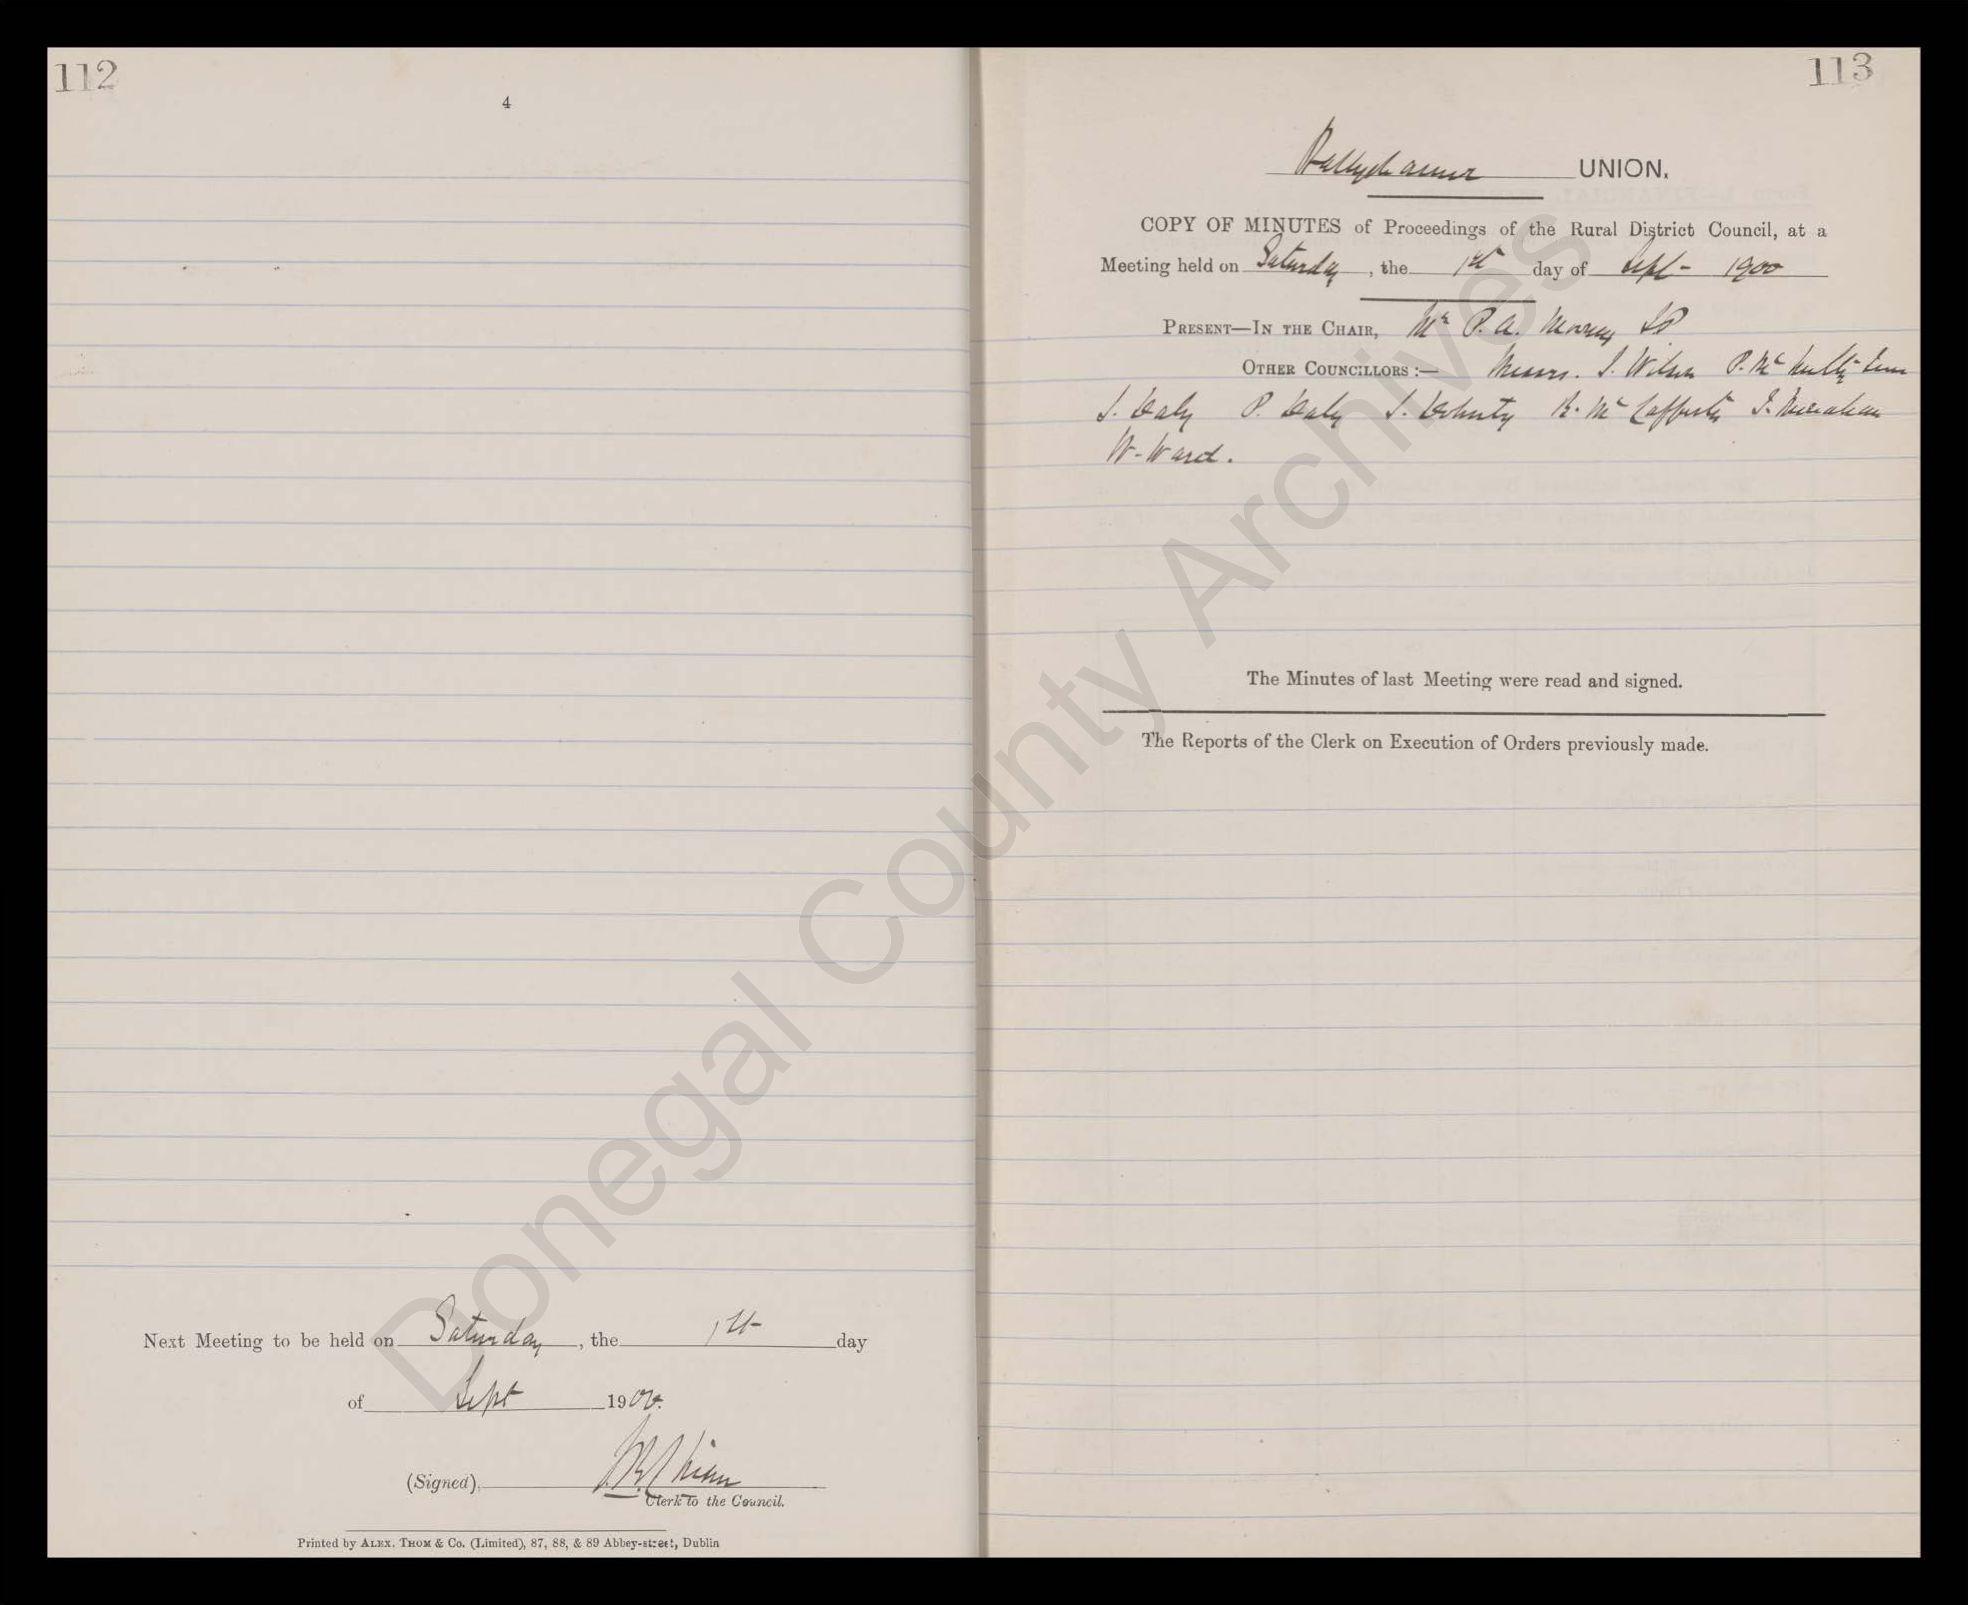 112
4
Next Meeting to be held on Saturday, the 1st day
of Sept 1900.
(Signed)
Clerk to the Council.
Printed by ALEX. THOM & Co. (Limited), 87, 88, & 89 Abbey-street, Dublin
113
Ballyshannon UNION.
COPY OF MINUTES of Proceedings of the Rural District Council, at a
Meeting held on Saturday, the 1st day of Sept - 1900
PRESENT—IN THE CHAIR, Mr P. A. JP
OTHER COUNCILLORS :— Messrs. J. Wilson P. McNulty
J. Daly P. Daly J. Doherty R. McCafferty
W. Ward.
The Minutes of last Meeting were read and signed.
The Reports of the Clerk on Execution of Orders previously made.
Donegal County Archives